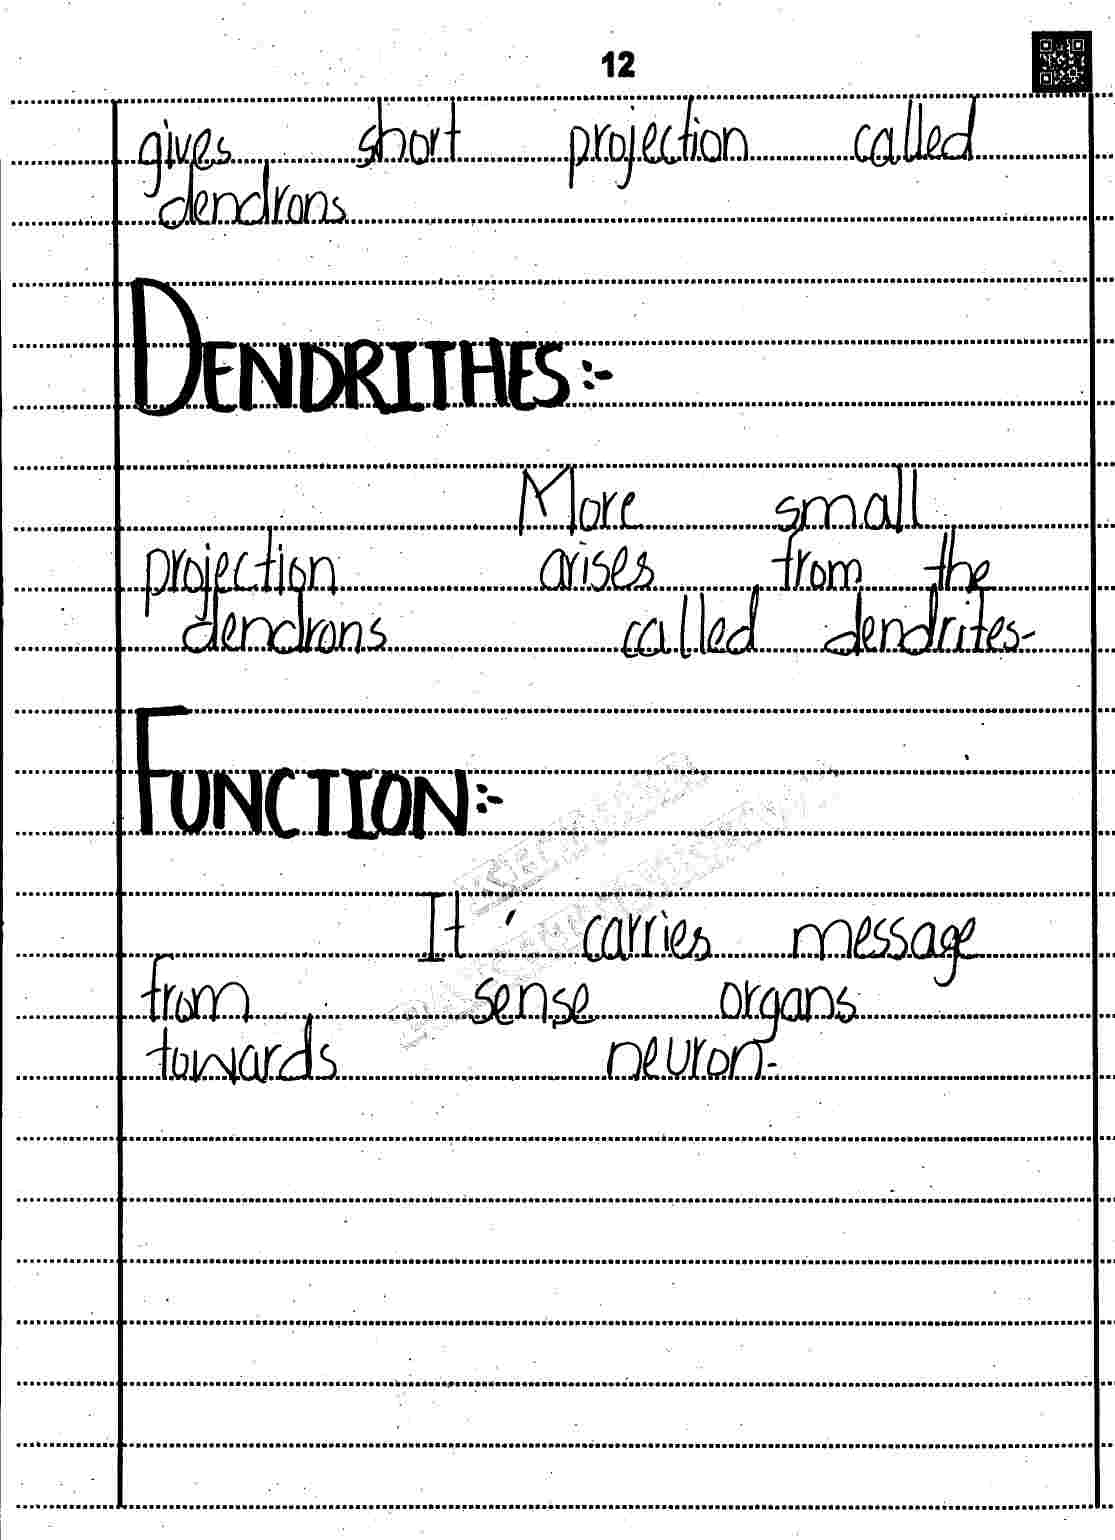 12
gives short projection called
dendrons
DENDRITHES:-
More small
projection arises from the
dendrons called dendrites-
FUNCTION:-
It carries message
from sense organs
towards neuron-